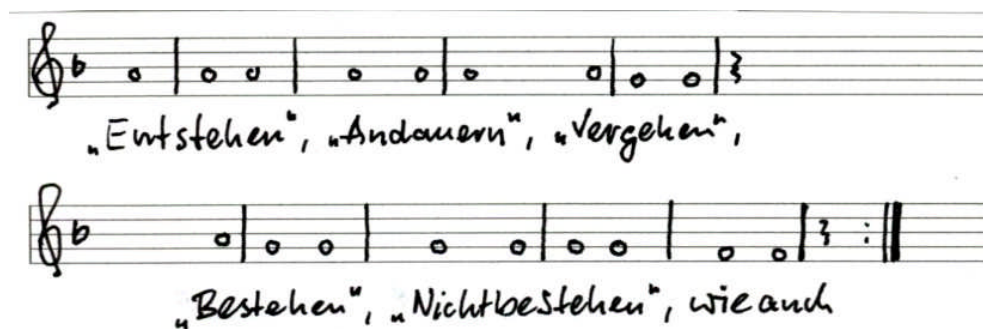 „Entstehen“, „Andauern“, „Vergehen“,
„Bestehen“, „Nichtbestehen“, wie auch